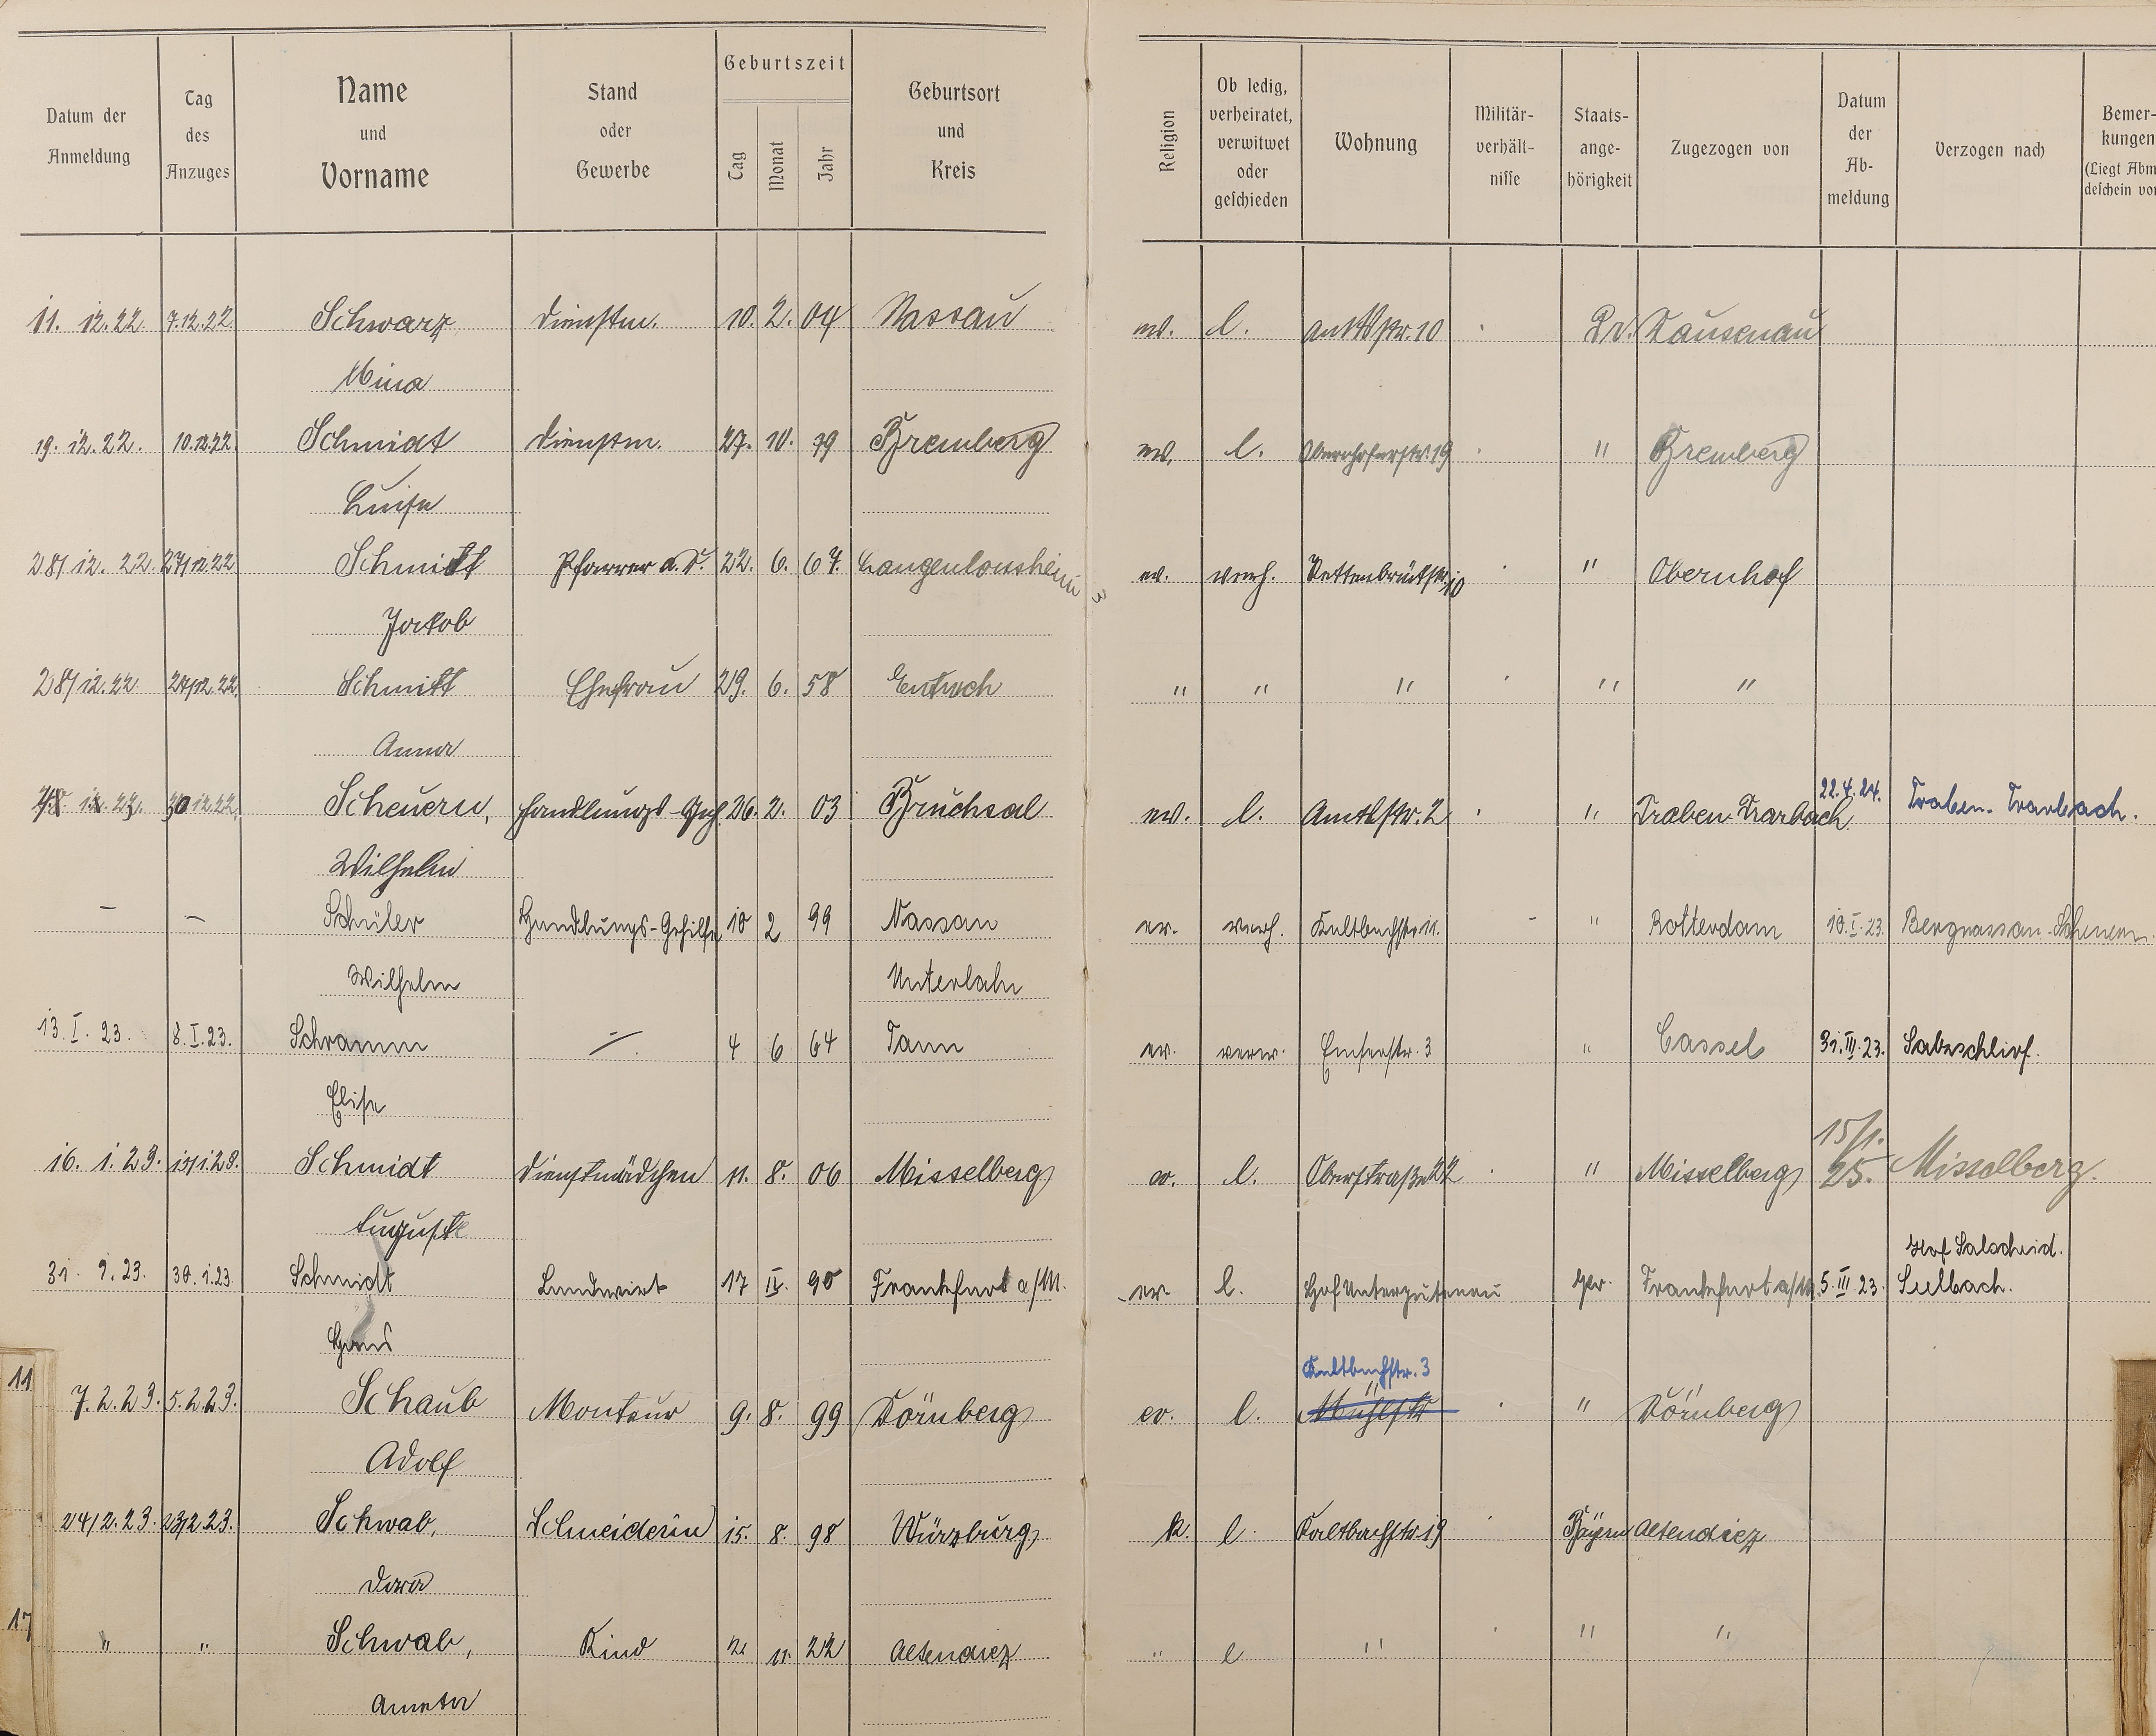 Datum der Anmeldung | Tag des Anzuges | Name und Vorname | Stand oder Gewerbe | Geburtszeit Tag Monat Jahr | Geburtsort und Kreis | Religion | Ob ledig, verheiratet, verwitwet oder geschieden | Wohnung | Militär-verhält-nisse | Staats-ange-hörigkeit | Zugezogen von | Datum der Ab-meldung | Verzogen nach | Bemer-kungen (Liegt Abm deschein vo
11. 12. 22. 7.12.22. Schwarz Dienstm. 10. 2. 04 Nassau ev. l. Amtsstr. 10 Pr. Dausenau
Mina
19. 12. 22. 10.12.22. Schmidt Dienstm. 27. 10. 99 Bremberg ev. l. Obernhoferstr. 19 " Bremberg
Luise
28/12. 22. 27/12.22 Schmitt Pfarrer a. D. 22. 6. 67. Langenlonsheim ev. verh. 10 " Obernhof
Jakob
28/12.22 27/12.22. Schmitt Ehefrau 29. 6. 58 " " " " "
Anna
12.22. 30 12.22. Scheuern, Handlungs-Geh. 26. 2. 03 Bruchsal ev. l. Amtsstr. 2 " Traben-Trarbach 22.4.24. Traben-Trarbach.
Wilhelm
– – Schüler Handlungs-Gehilfe 10 2 99 Nassau ev. verh. Kaltbachstr. 11. – " Rotterdam 10.I.23. Bergnassau-Scheuern
Wilhelm Unterlahn
13. I. 23. 8. I. 23. Schramm 4 6 64 Tann ev. verw. Emserstr. 3 " Cassel 31.III.23. Salzschlirf.
Elise
16. 1. 23. 15/1.23. Schmidt Dienstmädchen 11. 8. 06 Misselberg ev. l. Oberstraße 22 " Misselberg 15/1. 25. Misselberg.
Auguste
31. 1. 23. 30. 1. 23. Schmidt Landwirt 17 90 Frankfurt a/M. ev. l. Hof Unterguthenau Pr. Frankfurt a/M. 5. III. 23. Hof Salscheid. Seelbach.
Hans
11 7. 2. 23. 5. 2. 23. Schaub Monteur 9. 8. 99 Dörnberg ev. l. Kaltbachstr. 3 Mühlstr " Dörnberg
Adolf
24/2. 23. 23/2 23. Schwab, Schneiderin 15. 8. 98 Würzburg k. l. Kaltbachstr. 19 Bayern Altendiez
Dora
17 " " Schwab, Kind 2. 11. 22 Altendiez " l " " "